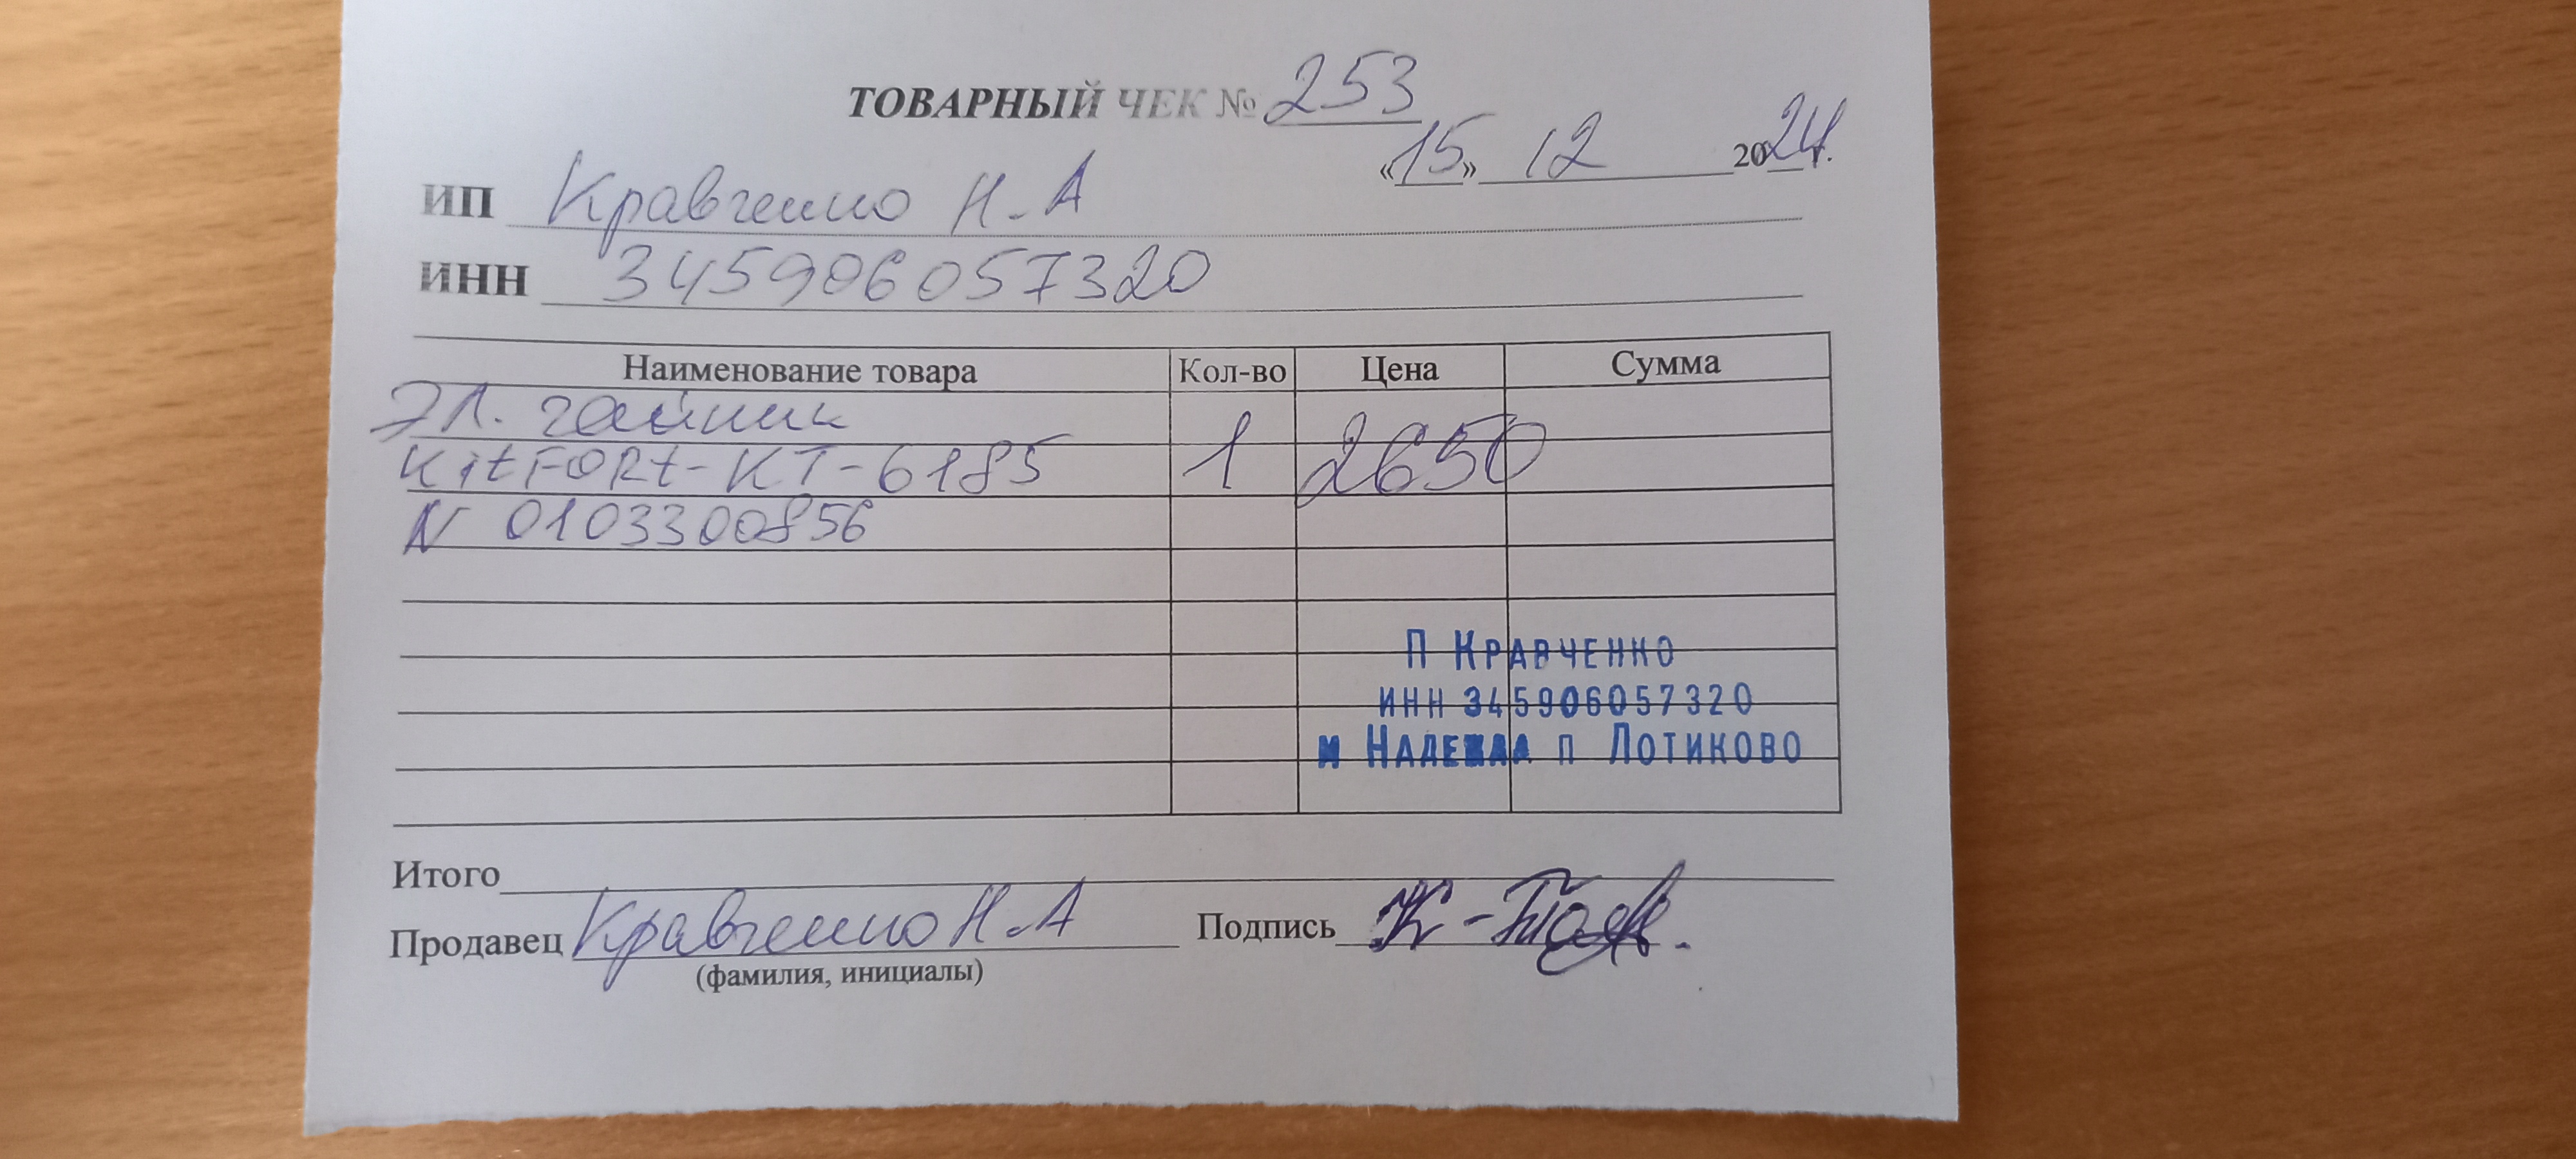 ТОВАРНЫЙ ЧЕК № 253
«15» 12 2024 г.
ИП Кравченко Н.А
ИНН 345906057320
Наименование товара Кол-во Цена Сумма
Эл. чайник
KitFORt-KT-6185 1 2650
N 0103300856
П КРАВЧЕНКО
ИНН 345906057320
м НАДЕЖДА п ЛОТИКОВО
Итого
Продавец Кравченко Н.А Подпись
(фамилия, инициалы)